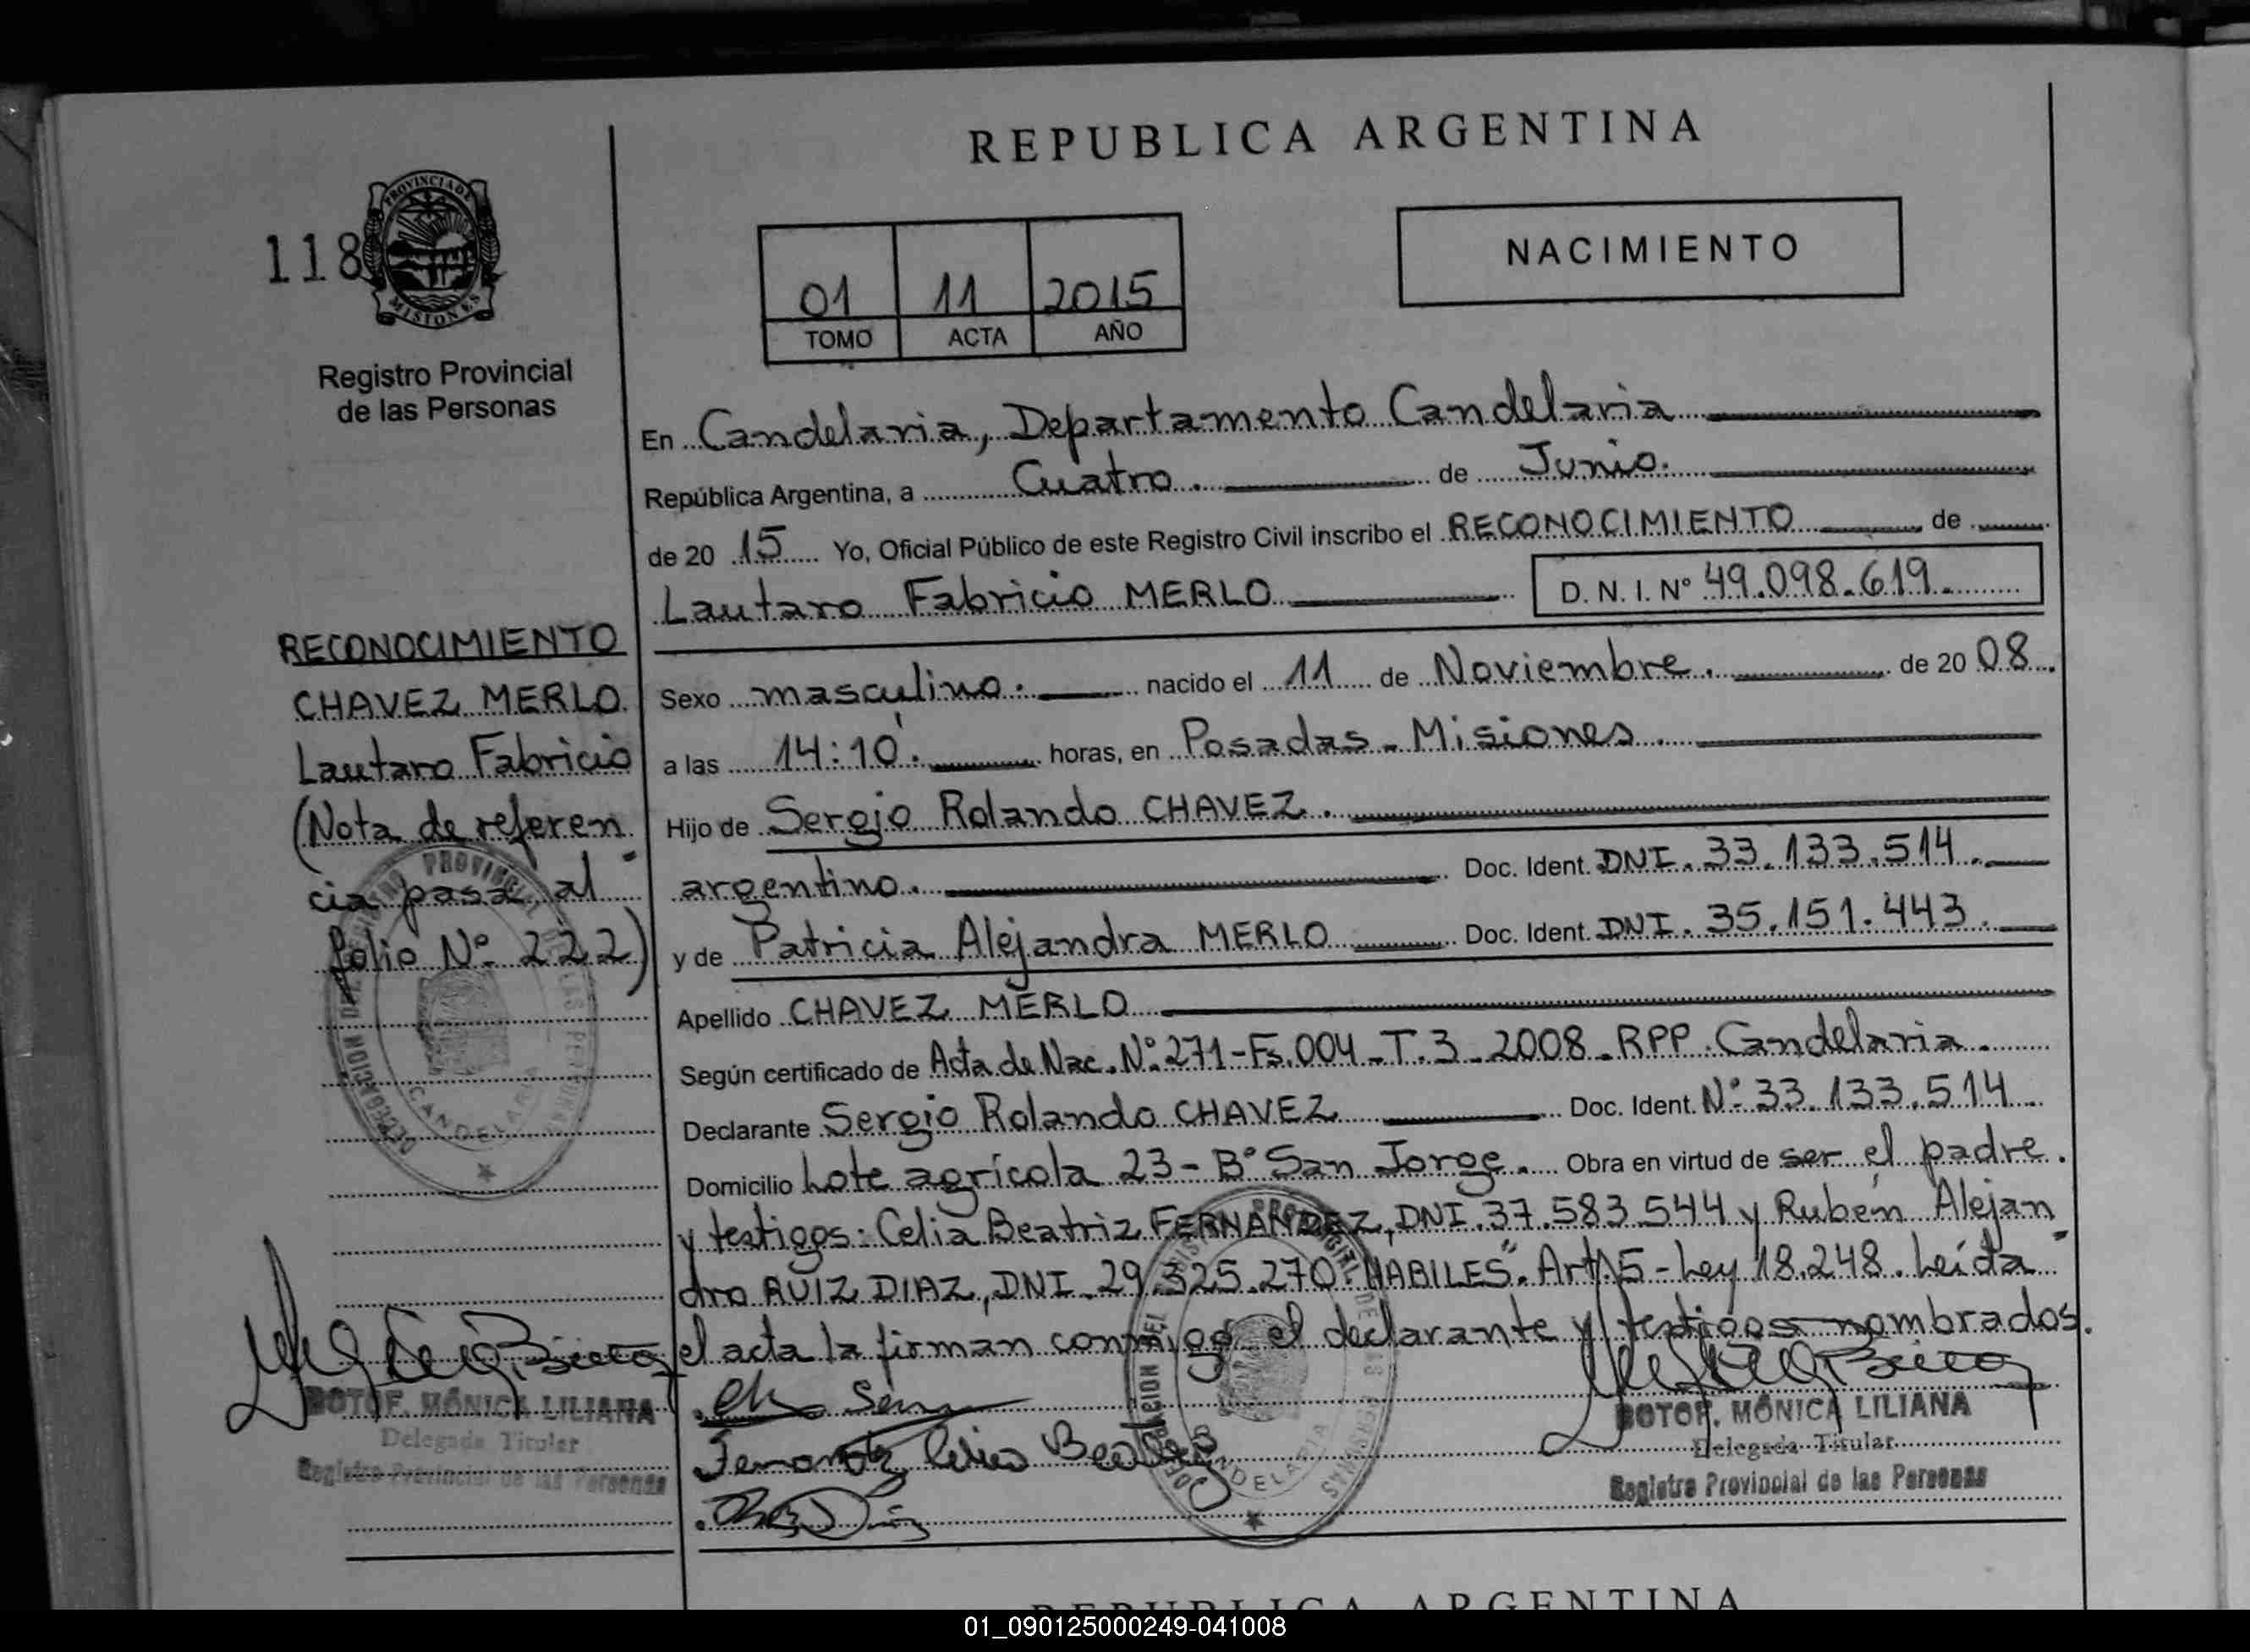 REPUBLICA ARGENTINA
118
PROVINCIA DE MISIONES
Registro Provincial
de las Personas
01 11 2015
TOMO ACTA AÑO
NACIMIENTO
En Candelaria, Departamento Candelaria
República Argentina, a Cuatro. de Junio.
de 20 15 Yo, Oficial Público de este Registro Civil inscribo el RECONOCIMIENTO de
Lautaro Fabricio MERLO D. N. I. Nº 49.098.619.
Sexo masculino. nacido el 11 de Noviembre. de 20 08.
a las 14:10'. horas, en Posadas - Misiones.
Hijo de Sergio Rolando CHAVEZ.
argentino. Doc. Ident. DNI. 33.133.514.
y de Patricia Alejandra MERLO Doc. Ident. DNI. 35.151.443.
Apellido CHAVEZ MERLO
Según certificado de Acta de Nac. Nº 271-Fs. 004-T.3-2008-RPP. Candelaria.
Declarante Sergio Rolando CHAVEZ Doc. Ident. Nº 33.133.514.
Domicilio Lote agrícola 23 - Bº San Jorge. Obra en virtud de ser el padre.
y testigos: Celia Beatriz FERNANDEZ, DNI. 37.583.544 y Rubén Alejan
dro RUIZ DIAZ, DNI. 29.325.270. "HABILES". Art. 5 - Ley 18.248. Leída
el acta la firman conmigo el declarante y testigos nombrados.
RECONOCIMIENTO
CHAVEZ MERLO
Lautaro Fabricio
(Nota de referen
cia pasa al
folio Nº 222)
BOTOF. MÓNICA LILIANA
Delegada Titular
Registro Provincial de las Personas
BOTOF. MÓNICA LILIANA
Delegada Titular
Registro Provincial de las Personas
REPUBLICA ARGENTINA
01_090125000249-041008